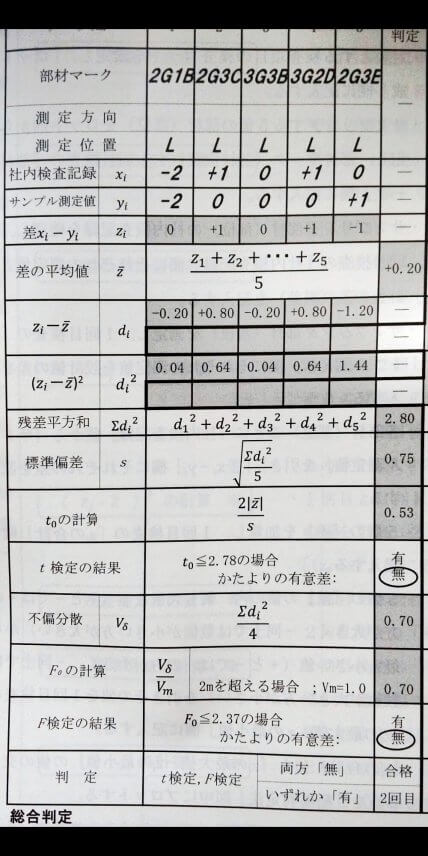 判定
部材マーク 2G1B 2G3C 3G3B 3G2D 2G3E
測定方向 —
測定位置 L L L L L
社内検査記録 xi −2 +1 0 +1 0 —
サンプル測定値 yi −2 0 0 0 +1 —
差xi−yi zi 0 +1 0 +1 -1 —
差の平均値 z̄ z1+z2+⋯+z5 / 5 +0.20
zi−z̄ di −0.20 +0.80 −0.20 +0.80 −1.20 —
—
(zi−z̄)² di² 0.04 0.64 0.04 0.64 1.44 —
—
残差平方和 Σdi² d1²+d2²+d3²+d4²+d5² 2.80
標準偏差 s √(Σdi² / 5) 0.75
t0の計算 2|z̄| / s 0.53
t検定の結果 t0≦2.78の場合 有
かたよりの有意差: 無
不偏分散 Vδ Σdi² / 0.70
F0の計算 Vδ / Vm 2mを超える場合 ;Vm=1.0 0.70
F検定の結果 F0≦2.37の場合 有
かたよりの有意差: 無
判定 t検定, F検定 両方「無」 合格
いずれか「有」 2回目
総合判定